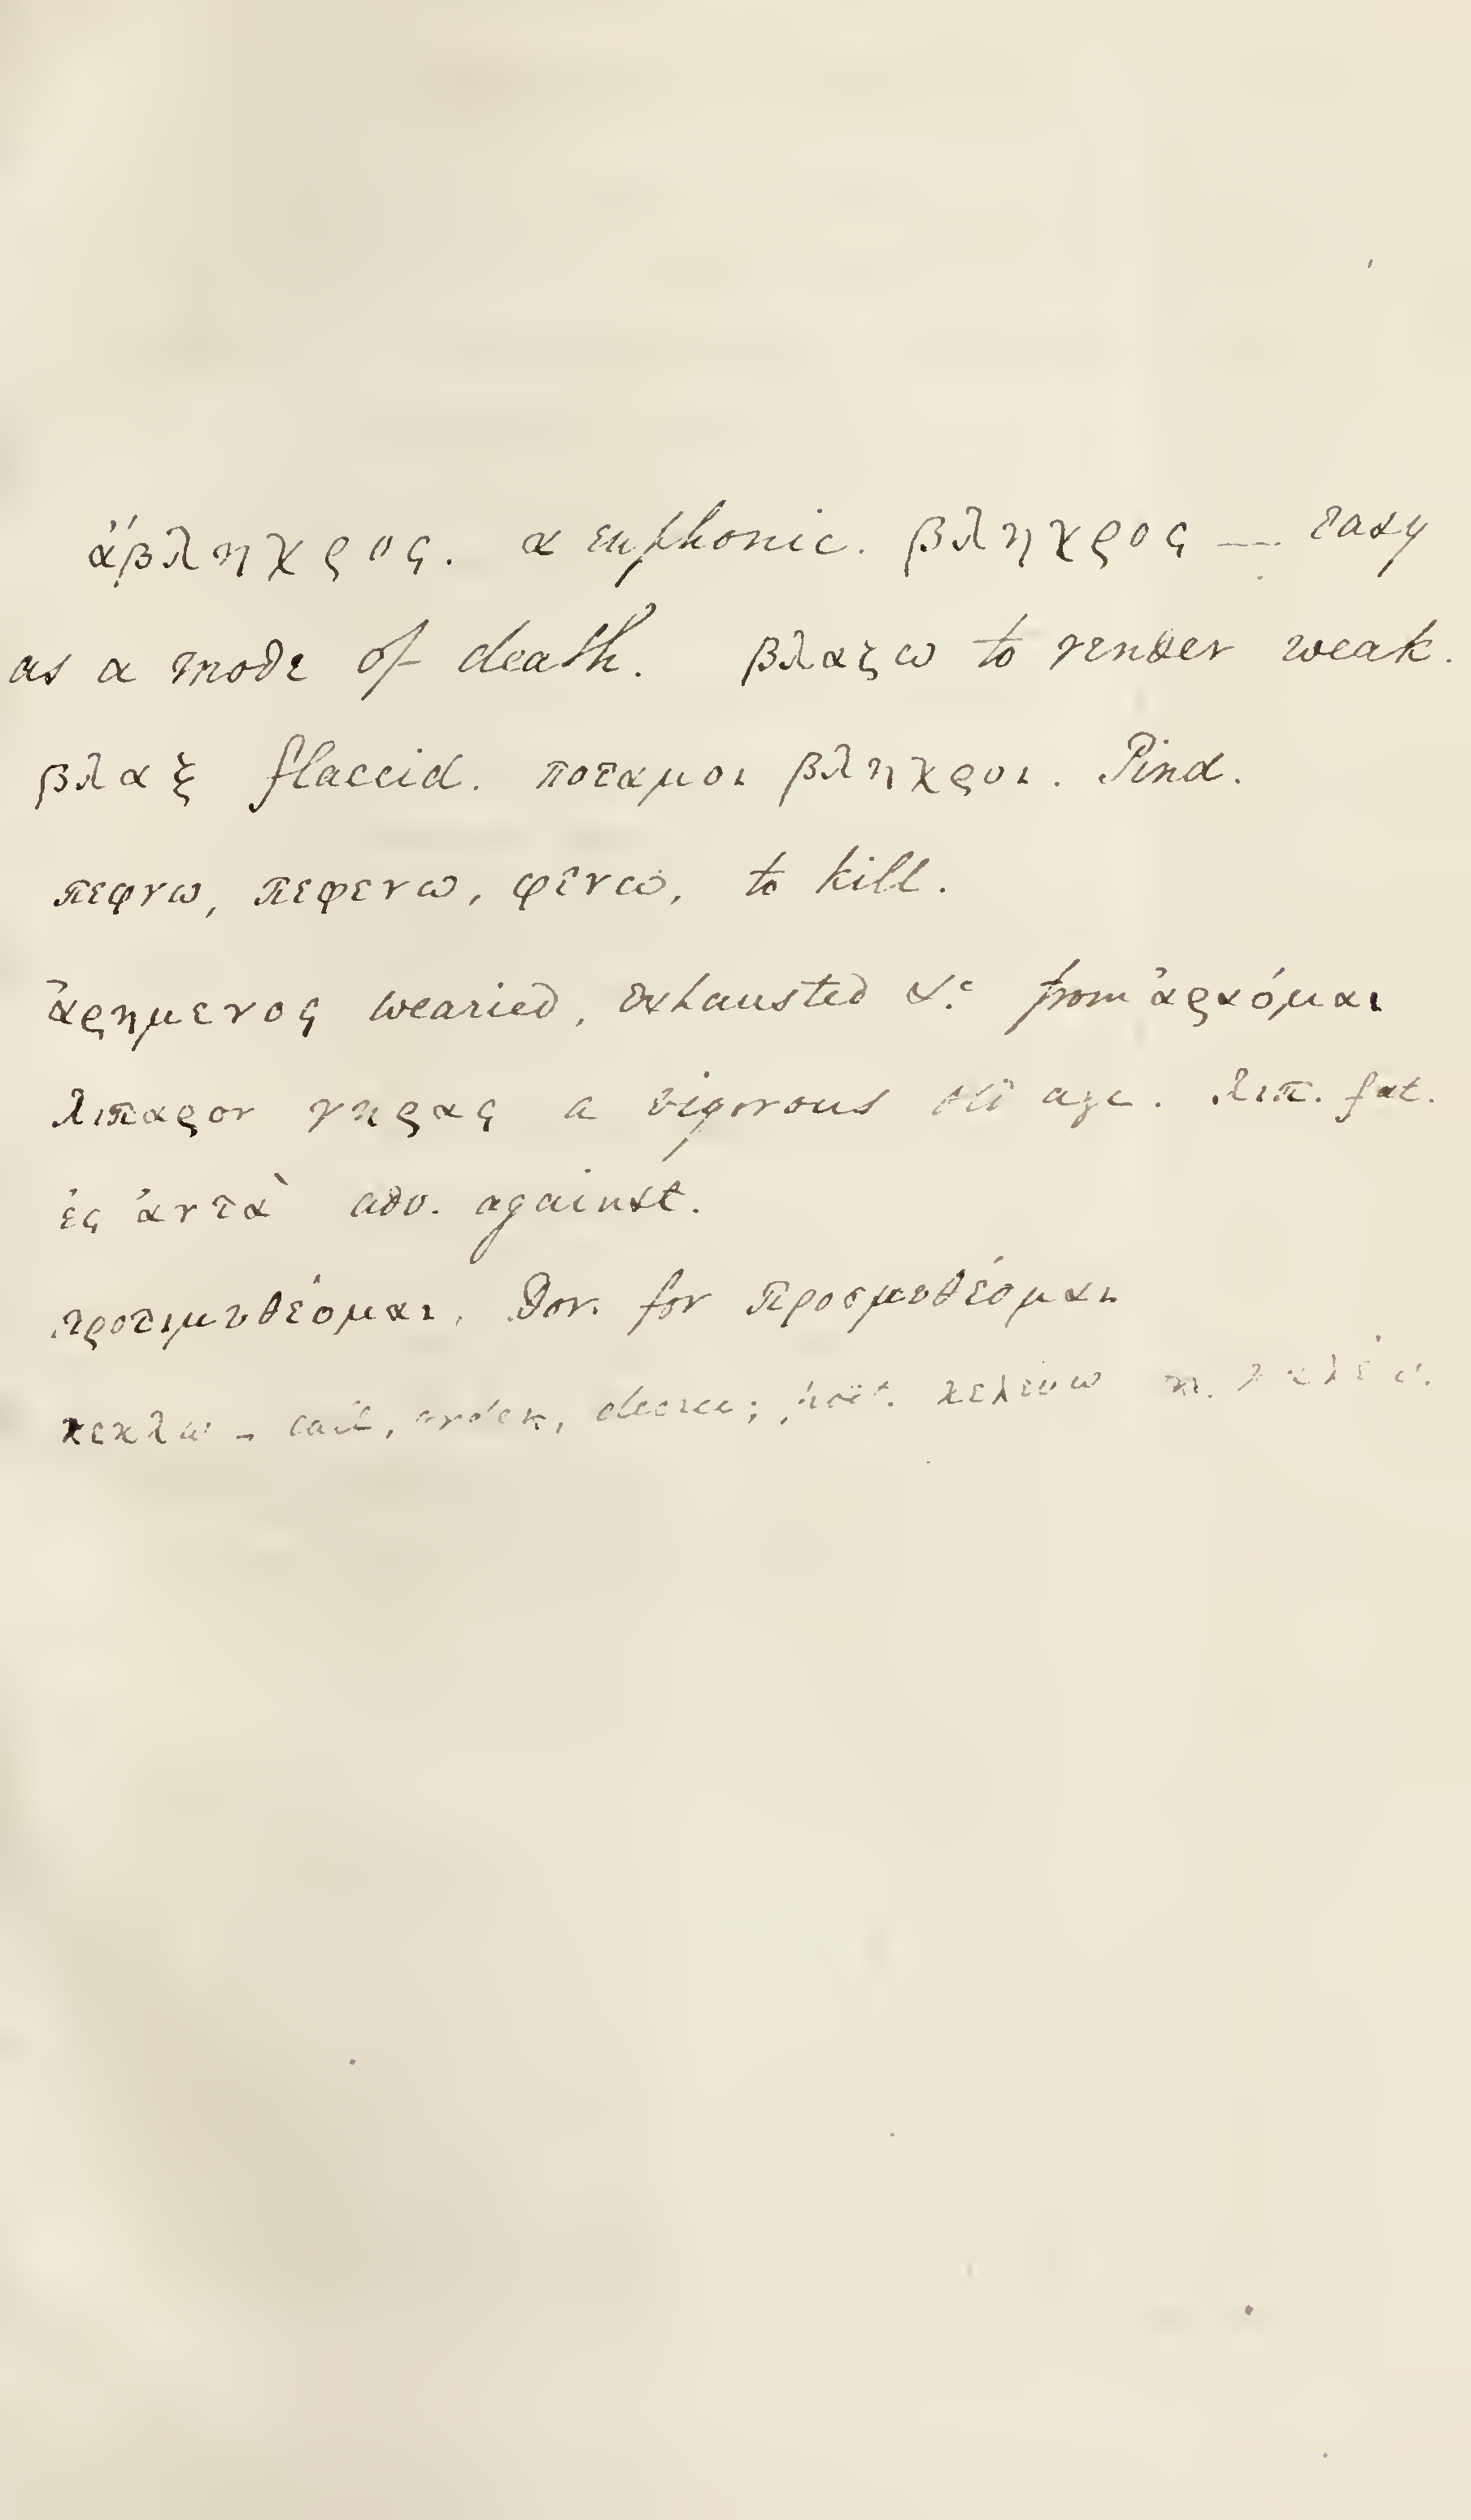 ἄβληχρος. α euphonic. βληχρος — easy
as a mode of death. βλαζω to render weak.
βλαξ flaccid. ποταμοι βληχροι. Pind.
πεφνω, πεφενω, φενω, to kill.
ἀρημενος wearied, exhausted &c from ἀραόμαι
λιπαρον γηρας a vigorous old age. λιπ. fat.
ἐς ἀντὰ adv. against.
προτιμυθέομαι, Dor. for προσμυθέομαι
κεκλω - call, order, decree; poët. κελεύω